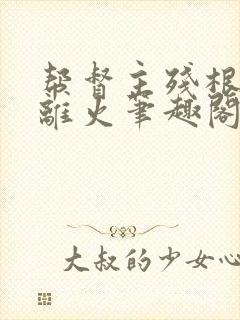 帮督主残根
离火笔趣阁
大叔的少女心